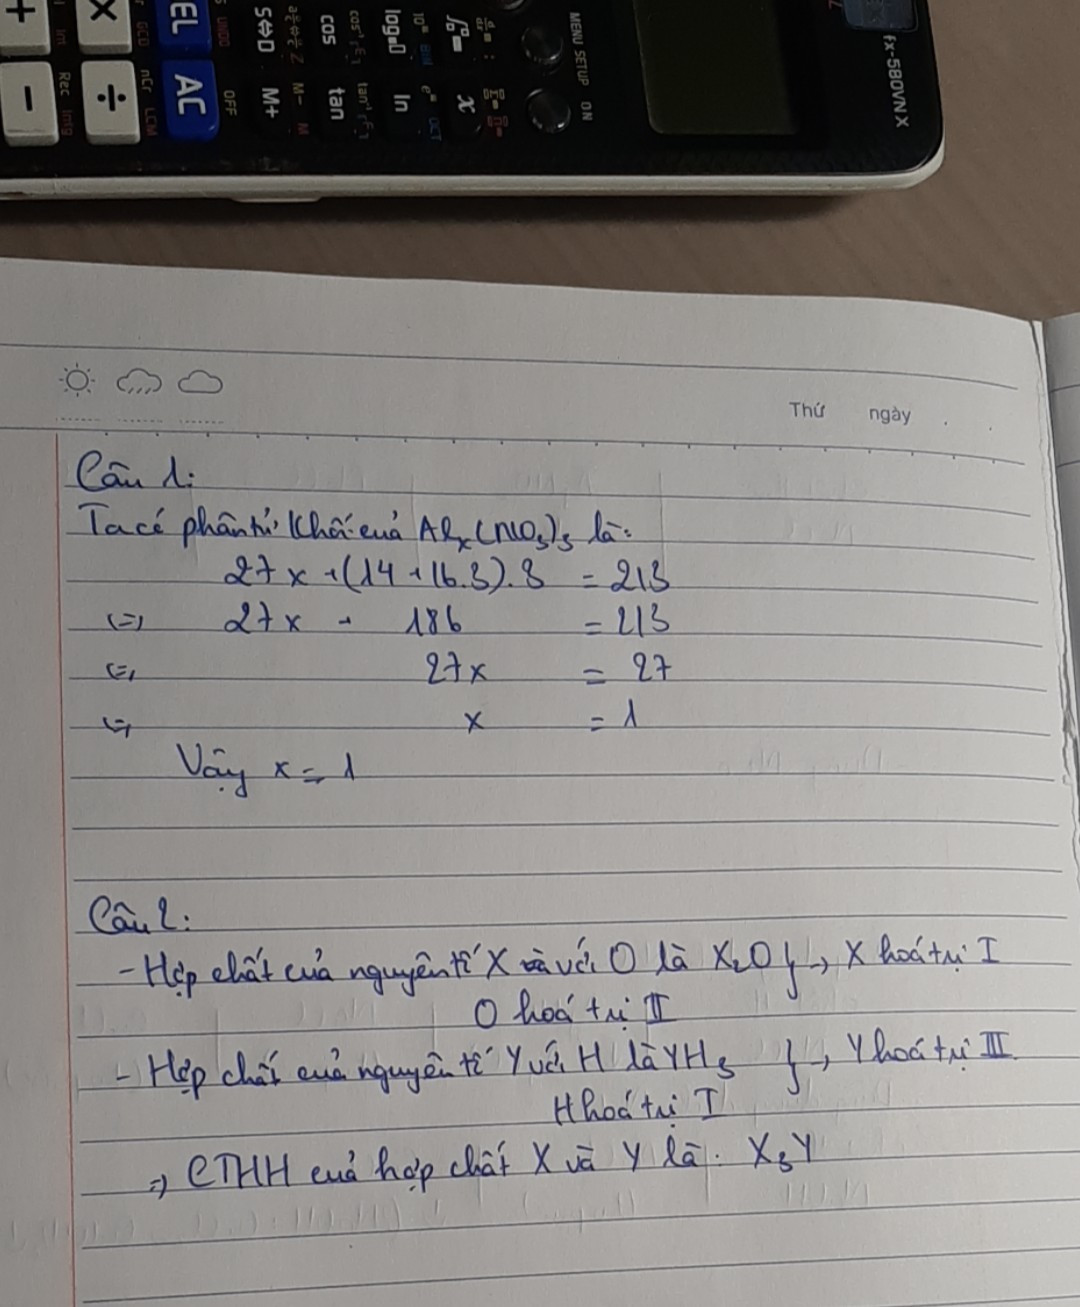 fx-580VN X
MENU SETUP ON
x
log ln
cos tan
S⇔D M+
OFF
EL AC
× ÷
+ -
Thứ ngày
Câu 1:
Ta có phân tử khối của Alx(NO3)3 là:
27x + (14 + 16.3).3 = 213
(=) 27x + 186 = 213
(=) 27x = 27
(=) x = 1
Vậy x = 1
Câu 2:
- Hợp chất của nguyên tố X với O là X2O } → X hoá trị I
O hoá trị II
- Hợp chất của nguyên tố Y với H là YH3 } → Y hoá trị III
H hoá trị I
=) CTHH của hợp chất X và Y là: X3Y